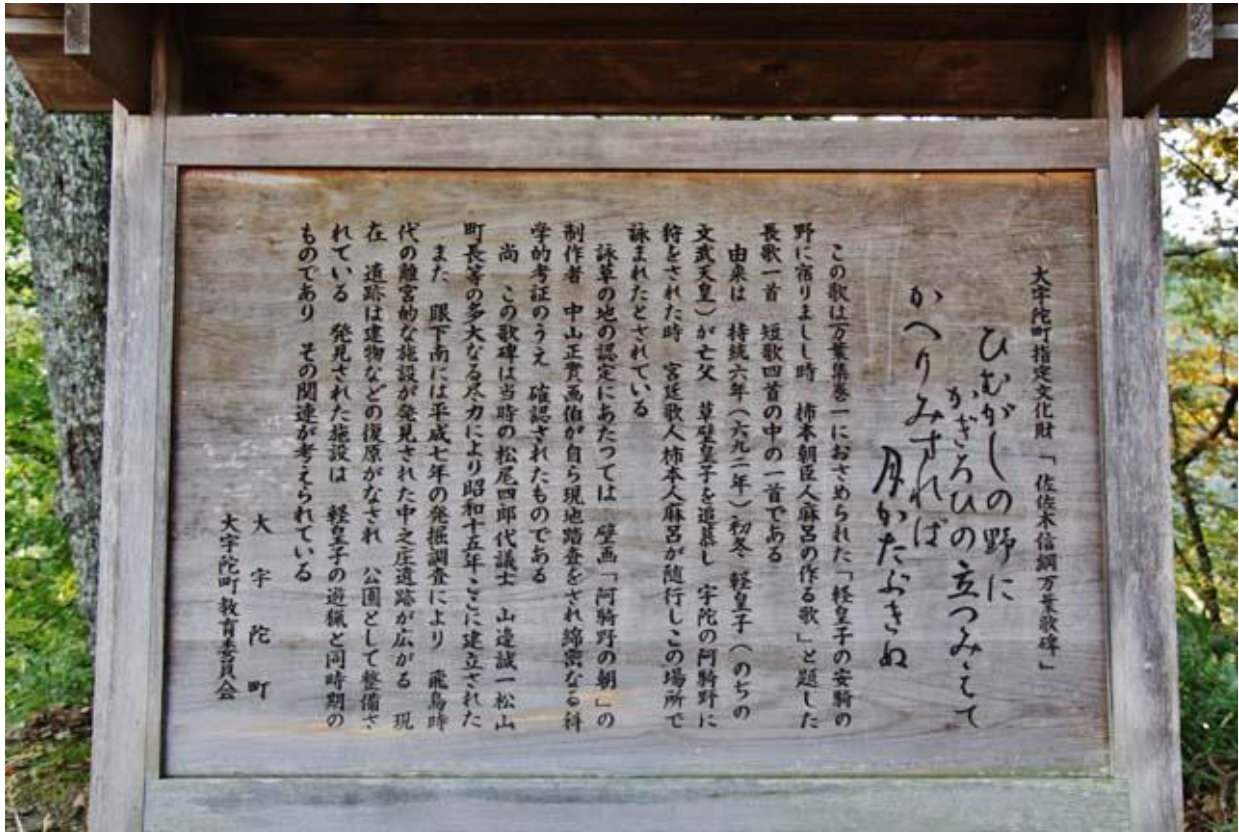 大宇陀町指定文化財「佐佐木信綱万葉歌碑」
ひむがしの野に
かぎろひの立つみえて
かへりみすれば
月かたぶきぬ
この歌は万葉集巻一におさめられた「軽皇子の安騎の
野に宿りましし時　柿本朝臣人麻呂の作る歌」と題した
長歌一首　短歌四首の中の一首である
由来は　持統六年（六九二年）初冬　軽皇子（のちの
文武天皇）が亡父　草壁皇子を追慕し　宇陀の阿騎野に
狩をされた時　宮廷歌人柿本人麻呂が随行しこの場所で
詠まれたとされている
詠草の地の認定にあたっては　壁画「阿騎野の朝」の
制作者　中山正實画伯が自ら現地踏査をされ綿密なる科
学的考証のうえ　確認されたものである
尚　この歌碑は当時の松尾四郎代議士　山邊誠一松山
町長等の多大なる尽力により昭和十五年ここに建立された
また　眼下南には平成七年の発掘調査により　飛鳥時
代の離宮的な施設が発見された中之庄遺跡が広がる　現
在　遺跡は建物などの復原がなされ　公園として整備さ
れている　発見された施設は　軽皇子の遊猟と同時期の
ものであり　その関連が考えられている
大宇陀町
大宇陀町教育委員会